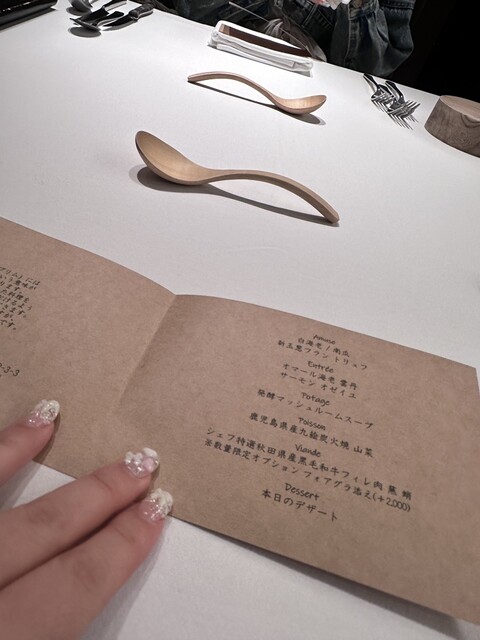 には
Amuse
白海老ノ南瓜
新玉葱フラン トリュフ
Entrée
オマール海老 雲丹
サーモン オゼイユ
Potage
発酵マッシュルームスープ
Poisson
鹿児島県産九絵炭火焼 山菜
Viande
シェフ特選秋田県産黒毛和牛フィレ肉 葱
※数量限定オプション フォアグラ添え(+2,000)
Dessert
本日のデザート